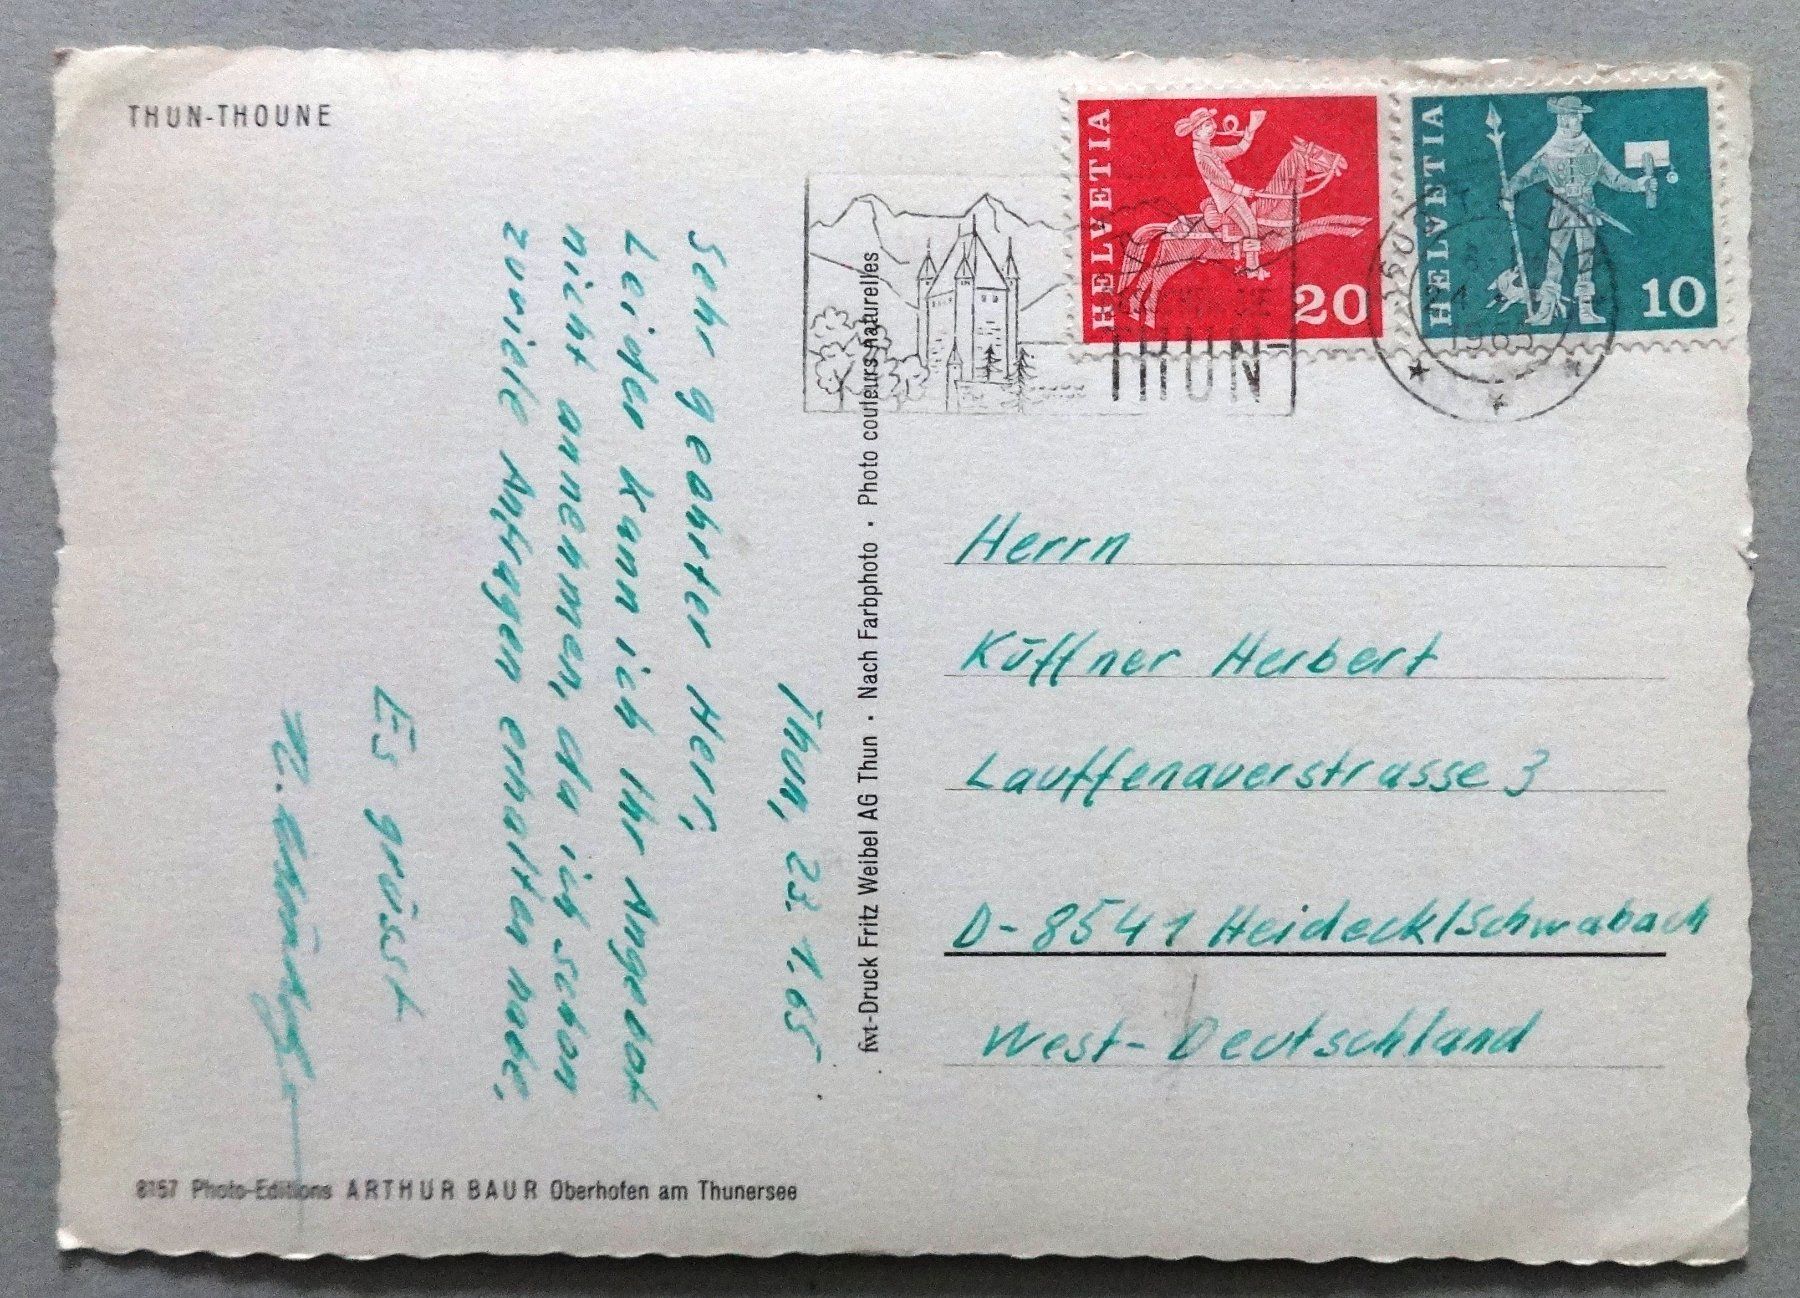 THUN-THOUNE
HELVETIA
20
HELVETIA
10
THUN
1965
Thun, 23. 1. 65
Sehr geehrter Herr,
Leider kann ich Ihr Angebot
nicht annehmen, da ich schon
zuviele Anfragen erhalten habe.
Es grüsst
fwt-Druck Fritz Weibel AG Thun · Nach Farbphoto · Photo couleurs naturelles
Herrn
Küffner Herbert
Lauffenauerstrasse 3
D-8541 Heideck/Schwabach
West-Deutschland
8157 Photo-Editions ARTHUR BAUR Oberhofen am Thunersee